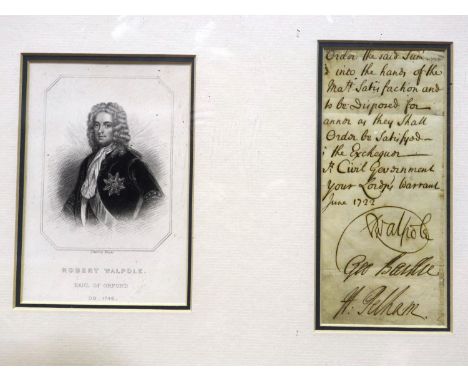 ROBERT WALPOLE.
EARL OF ORFORD
OB. 1745.
Order the said Sum
into the hands of the
Satisfaction and
to be Disposed for
as they Shall
Order be Satisfyed
the Exchequer
Civil Government
Your Lordps Warrant
June 1722
RWalpole
Geo Baillie
H. Pelham.